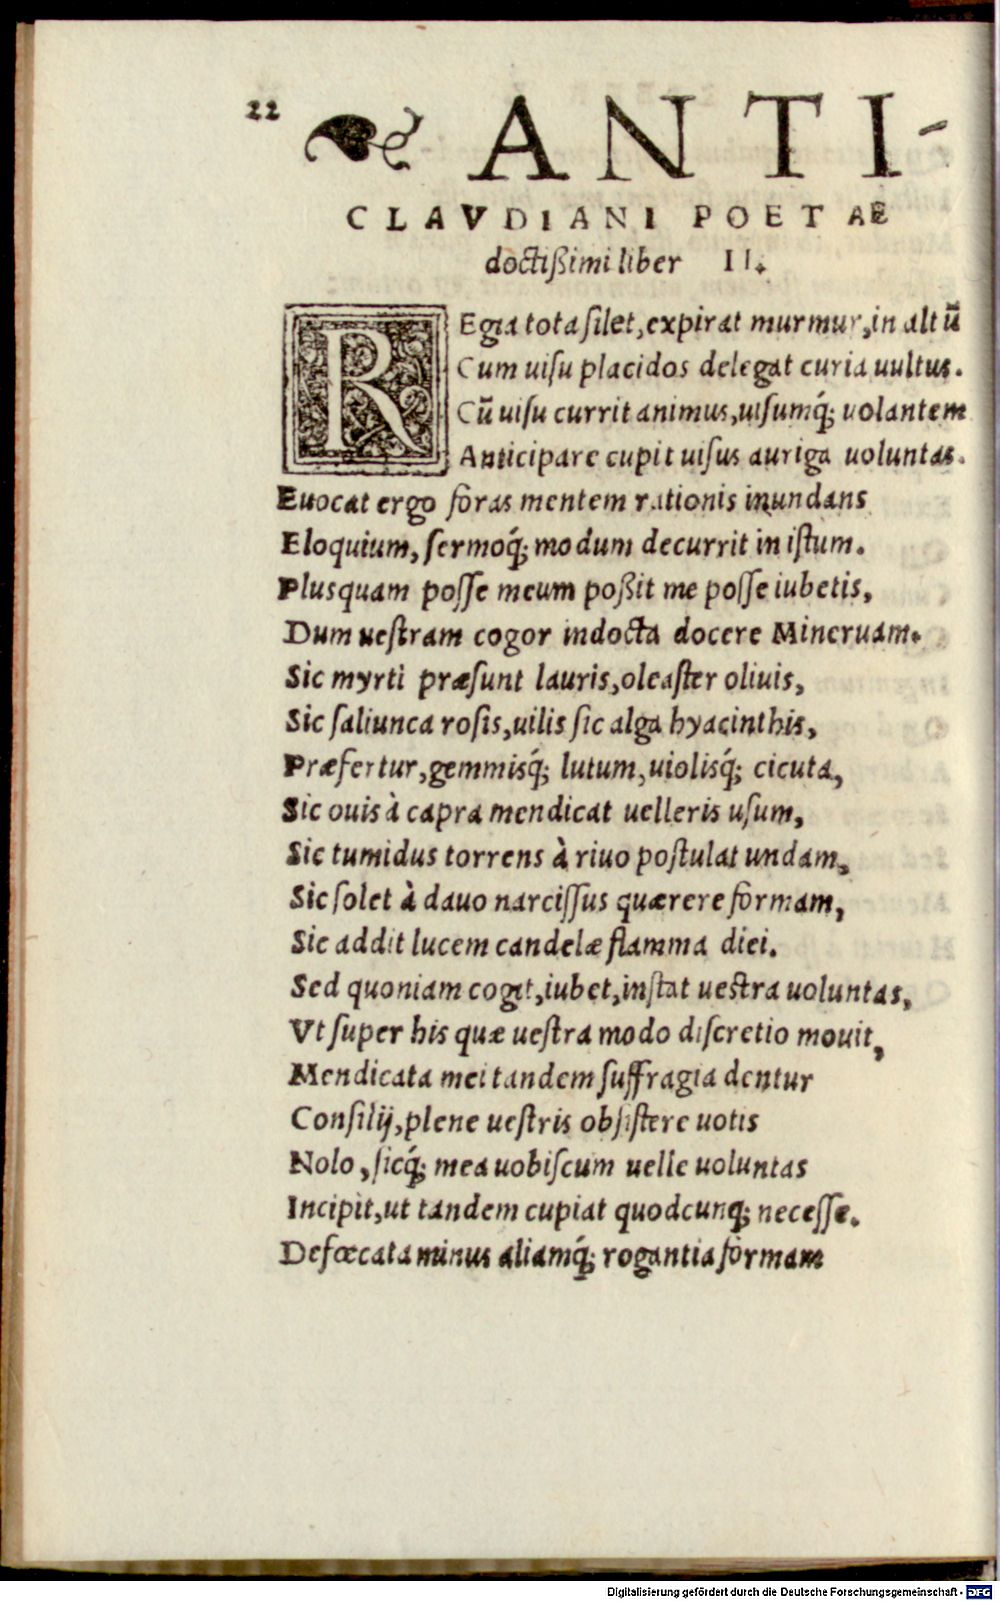 22 ❧ ANTI-
CLAVDIANI POETAE
doctißimi liber II.
REgia tota silet, expirat murmur, in altũ
Cum uisu placidos delegat curia uultus.
Cũ uisu currit animus, uisumq́; uolantem
Anticipare cupit uisus auriga uoluntas.
Euocat ergo foras mentem rationis inundans
Eloquium, sermoq́; modum decurrit in istum.
Plusquam posse meum poßit me posse iubetis,
Dum uestram cogor indocta docere Mineruam.
Sic myrti præsunt lauris, oleaster oliuis,
Sic saliunca rosis, uilis sic alga hyacinthis,
Præfertur, gemmisq́; lutum, uiolisq́; cicuta,
Sic ouis à capra mendicat uelleris usum,
Sic tumidus torrens à riuo postulat undam,
Sic solet à dauo narcissus quærere formam,
Sic addit lucem candelæ flamma diei.
Sed quoniam cogit, iubet, instat uestra uoluntas,
Vt super his quæ uestra modo discretio mouit,
Mendicata mei tandem suffragia dentur
Consilij, plene uestris obsistere uotis
Nolo, sicq́; mea uobiscum uelle uoluntas
Incipit, ut tandem cupiat quodcunq; necesse.
Defœcata minus aliamq́; rogantia formam
Digitalisierung gefördert durch die Deutsche Forschungsgemeinschaft - DFG